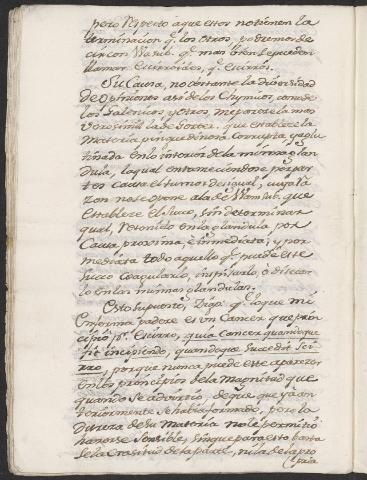 pero respecto a que estos no tienen la
terminacion q. los otros, podremos de
cir con Wansb. q. mas bien se pueden
llamar Escirroides, q. Escirros.
Su Causa, no obstante la diversidad
de opiniones asi de los Chymicos, como de
los Galenicos, y otros, me parece la mas
verosimil la de Gorter. que establece la
Materia pingue denota corrupta, y aglu
tinada en lo interior de la misma glan
dula, la qual entumeciendose por par
tes causa el tumor desigual, cuya ra
zon no se opone a la de Wansub. que
establece el Suco, sin determinar
qual, detenido en la glandula por
Causa proxima, è inmediata; y por
mediata todo aquello q. puede este
succo coagularlo, inspisarlo, ò disecar
lo en las mismas glandulas.
Esto supuesto, Digo, q. lo que mi
Enferma padece es un Cancer que prin
cipiò p.r Escirro, quia Cancer quandoque
fit incipiendo, quandoque succedit Scir
rro, porque nunca puede este aparecer
en los principios de la magnitud que
quando se advirtiò, de que que ya an
teriormente se habia formado, pero la
dureza de su Materia no le permitiò
hacerse sensible, sin que para esto basta
se la Crasitud de la parte, ni la de la pro
pria